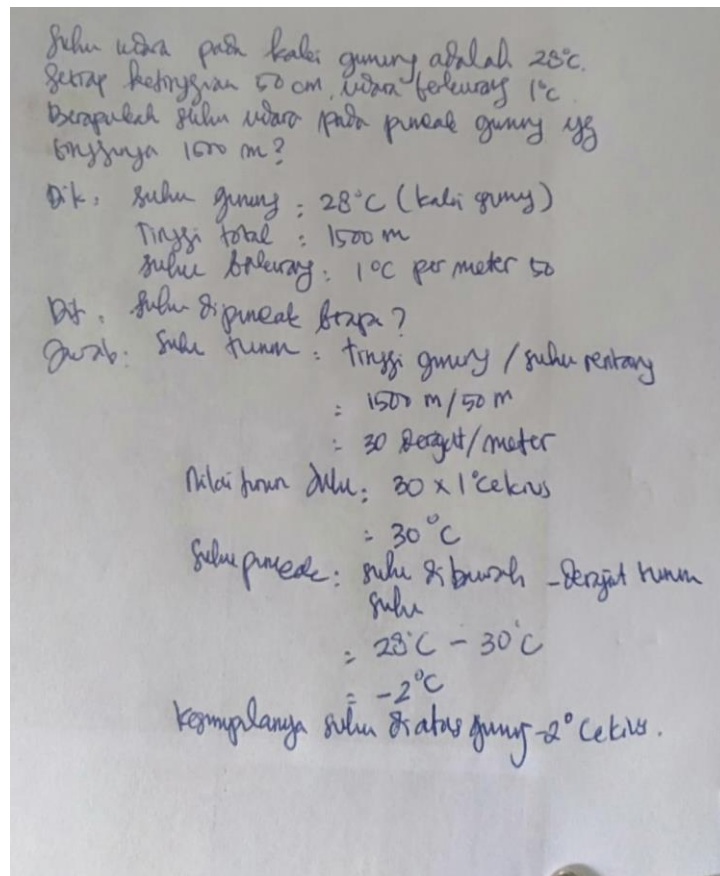 Suhu udara pada kaki gunung adalah 28°C.
Setiap ketinggian 50 cm, udara berkurang 1°C
Berapakah suhu udara pada puncak gunung yg
tingginya 1500 m?
Dik. Suhu gunung : 28°C (kaki gunung)
Tinggi total : 1500 m
Suhu berkurang : 1°C per meter 50
Dit. Suhu dipuncak brapa?
Jawab: Suhu turun : tinggi gunung / suhu rentang
= 1500 m/50 m
= 30 derajat/meter
Nilai turun suhu : 30 x 1°Celcius
= 30°C
Suhu puncak : suhu dibawah - derajat turun
suhu
= 28°C - 30°C
= -2°C
Kesimpulanya suhu diatas gunung -2° Celcius.